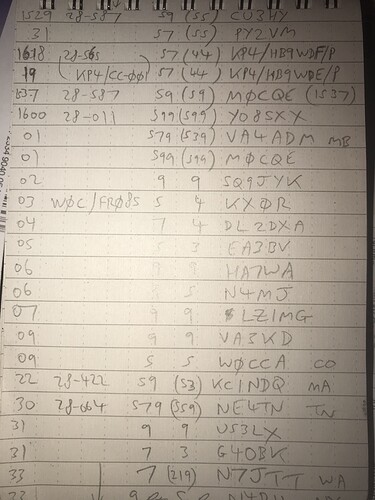 1529 28-587 59 (55) CU3HY
31 57 (55) PY2VM
1618 28-565 57 (44) KP4/HB9WDF/P
19 (KP4/CC-001) 57 (44) KP4/HB9WDE/P
1537 28-587 59 (59) MØCQE (1537)
1600 28-011 599 (599) YO8SXX
01 579 (539) VA4ADM MB
01 599 (599) MØCQE
02 9 9 SQ9JYK
03 WØC/FR085 5 4 KXØR
04 7 4 DL2DXA
05 5 3 EA3BV
06 9 9 HA7WA
06 8 5 N4MJ
07 9 9 LZ1MG
09 9 9 VA3KD
09 5 5 WØCCA CO
22 28-422 59 (53) KC1NDQ MA
30 28-064 579 (559) NE4TN TN
31 9 9 US3LX
31 7 3 G4OBK
33 7 (219) N7JTT WA
33